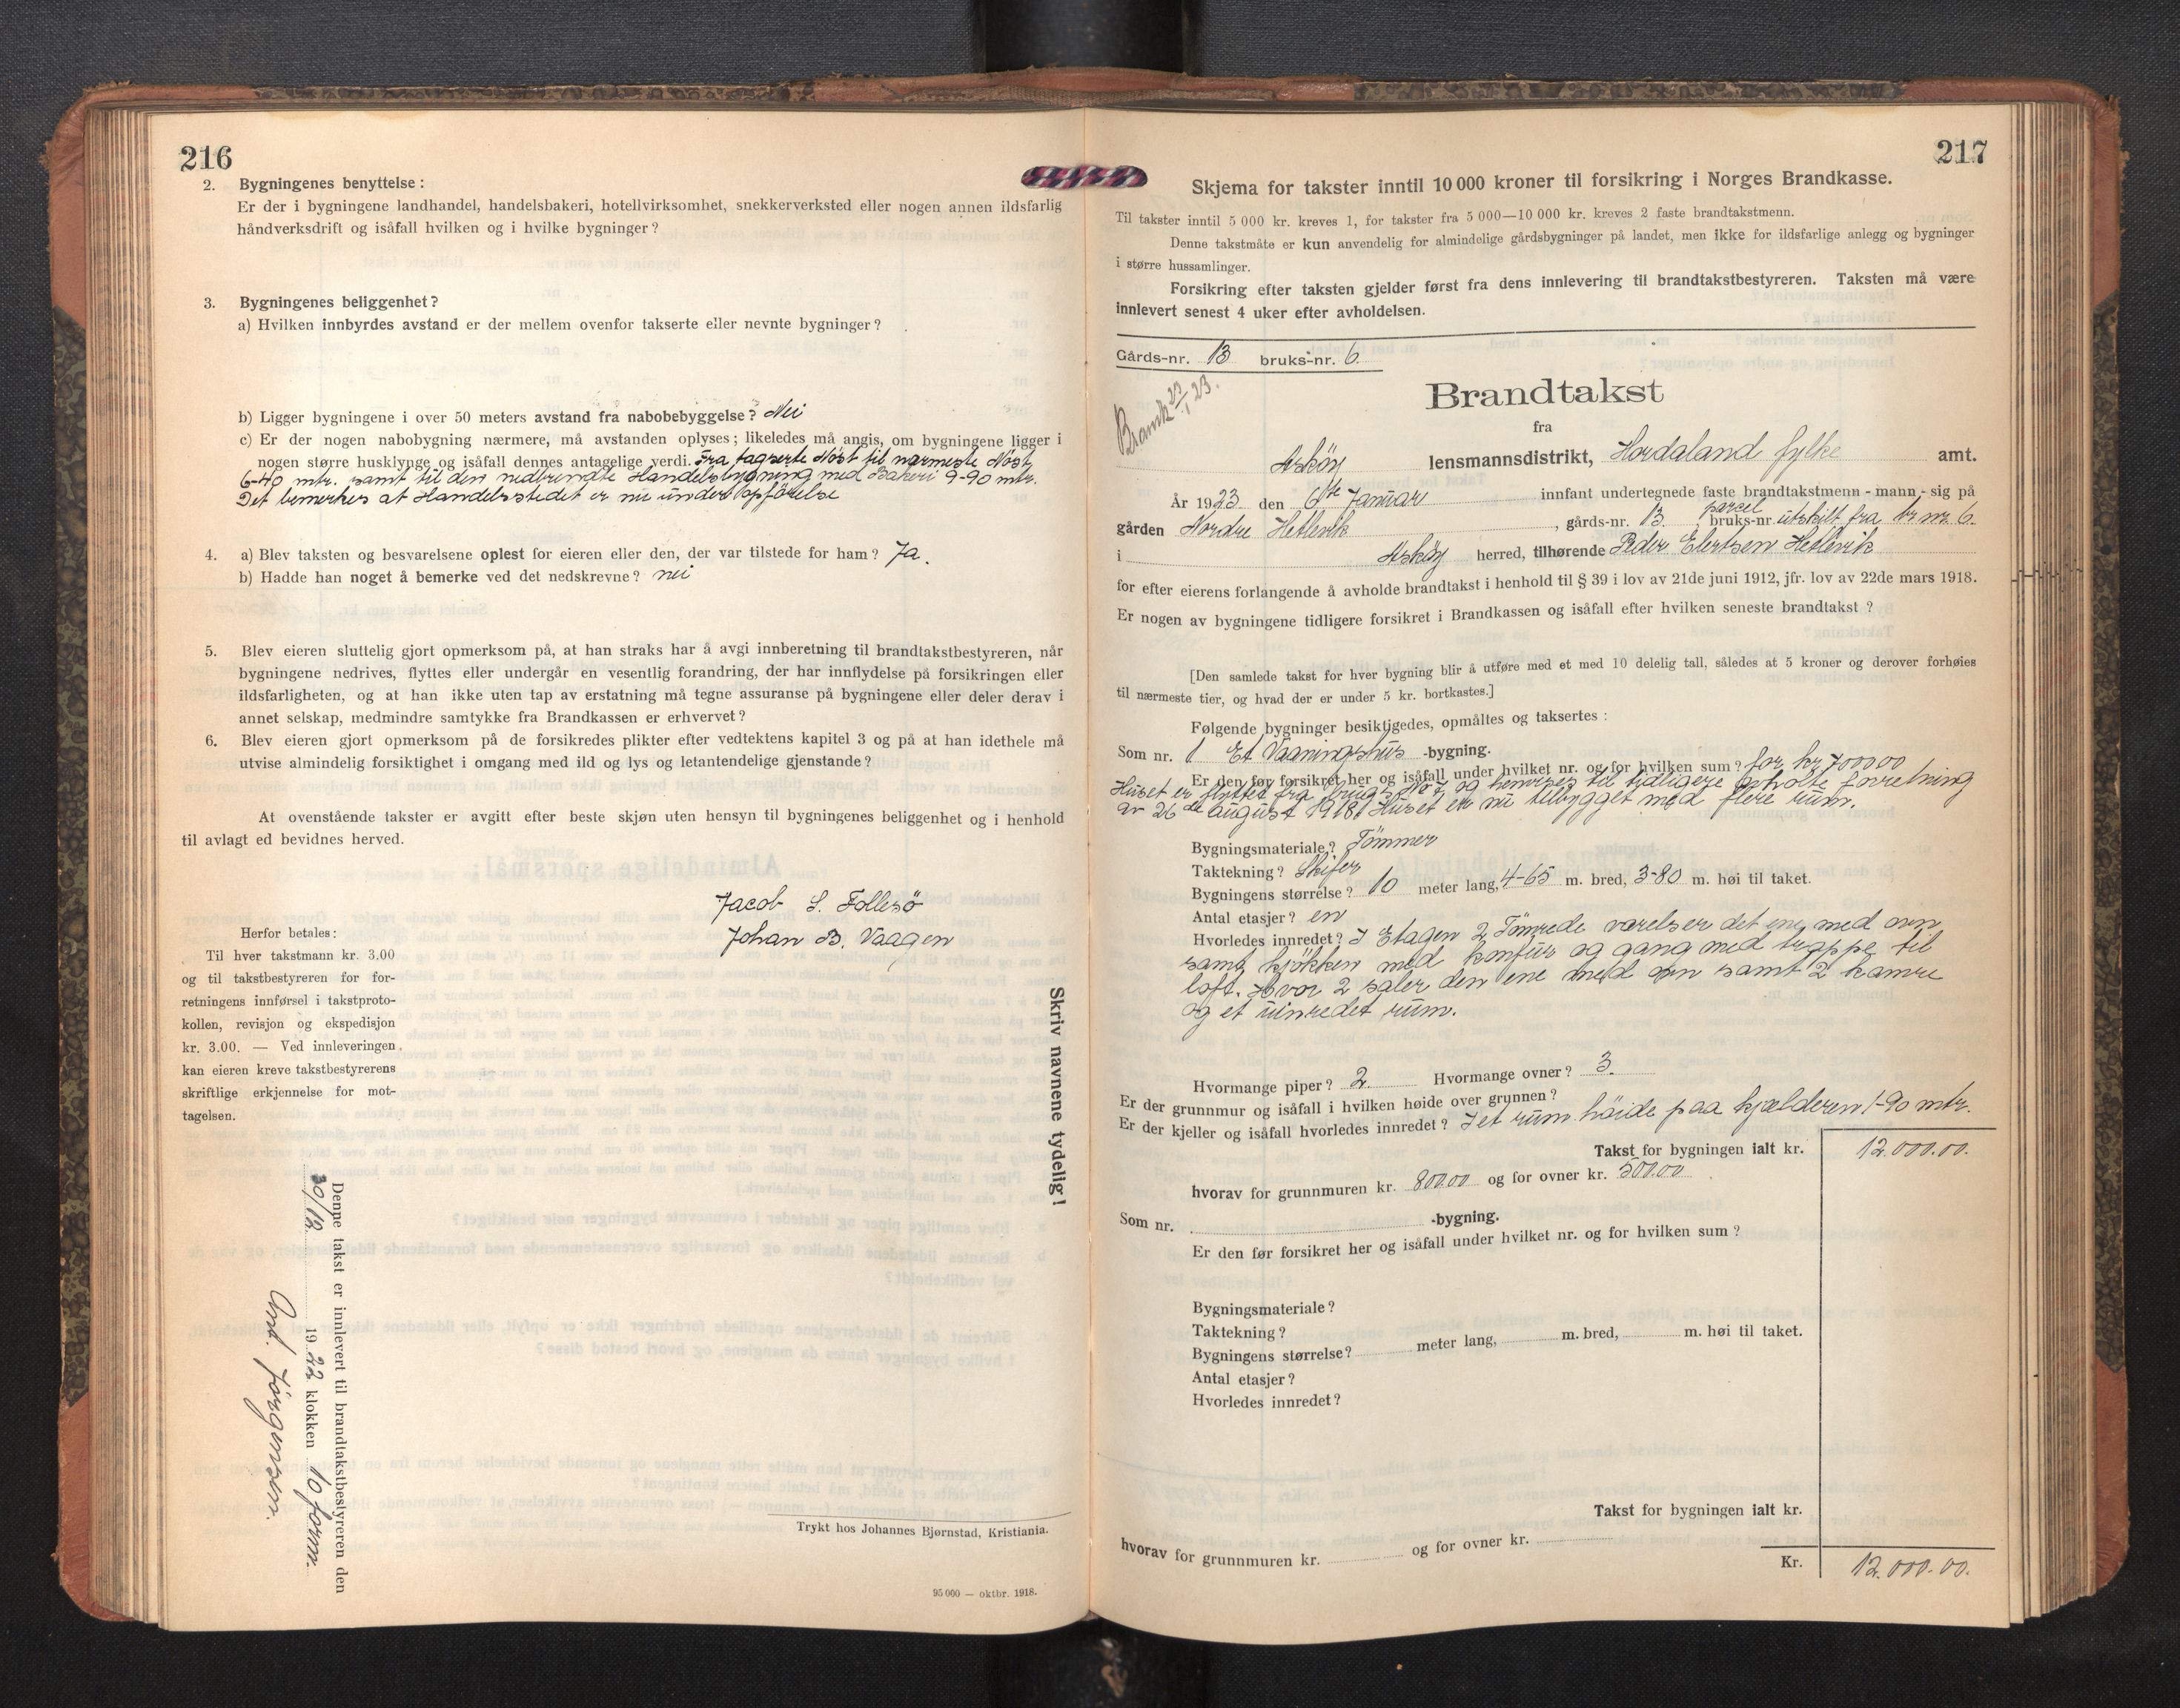 216
2. Bygningenes benyttelse :
Er der i bygningene landhandel, handelsbakeri, hotellvirksomhet, snekkerverksted eller nogen annen ildsfarlig
håndverksdrift og isåfall hvilken og i hvilke bygninger ?
3. Bygningenes beliggenhet ?
a) Hvilken innbyrdes avstand er der mellem ovenfor takserte eller nevnte bygninger ?
b) Ligger bygningene i over 50 meters avstand fra nabobebyggelse ? Nei
c) Er der nogen nabobygning nærmere, må avstanden oplyses ; likeledes må angis, om bygningene ligger i
nogen større husklynge og isåfall dennes antagelige verdi. Fra tagserte Nöst til nærmeste Nöst
6-40 mtr. samt til den nedbrendte Handelsbygning med Bakeri 9-90 mtr.
Det bemerkes at Handelsstedet er nu under opförelse
4. a) Blev taksten og besvarelsene oplest for eieren eller den, der var tilstede for ham ? Ja.
b) Hadde han noget å bemerke ved det nedskrevne ? nei
5. Blev eieren sluttelig gjort opmerksom på, at han straks har å avgi innberetning til brandtakstbestyreren, når
bygningene nedrives, flyttes eller undergår en vesentlig forandring, der har innflydelse på forsikringen eller
ildsfarligheten, og at han ikke uten tap av erstatning må tegne assuranse på bygningene eller deler derav i
annet selskap, medmindre samtykke fra Brandkassen er erhvervet ?
6. Blev eieren gjort opmerksom på de forsikredes plikter efter vedtektens kapitel 3 og på at han idethele må
utvise almindelig forsiktighet i omgang med ild og lys og letantendelige gjenstande ?
At ovenstående takster er avgitt efter beste skjøn uten hensyn til bygningenes beliggenhet og i henhold
til avlagt ed bevidnes herved.
Jacob S. Follesö
Johan B. Vaagen
Herfor betales :
Til hver takstmann kr. 3.00
og til takstbestyreren for for-
retningens innførsel i takstproto-
kollen, revisjon og ekspedisjon
kr. 3.00. — Ved innleveringen
kan eieren kreve takstbestyrerens
skriftlige erkjennelse for mot-
tagelsen.
Skriv navnene tydelig !
Denne takst er innlevert til brandtakstbestyreren den
30/12 1922 klokken 10 form.
Ant. Jörgensen.
Trykt hos Johannes Bjørnstad, Kristiania.
95 000 — oktbr. 1918.
217
Skjema for takster inntil 10 000 kroner til forsikring i Norges Brandkasse.
Til takster inntil 5 000 kr. kreves 1, for takster fra 5 000—10 000 kr. kreves 2 faste brandtakstmenn.
Denne takstmåte er kun anvendelig for almindelige gårdsbygninger på landet, men ikke for ildsfarlige anlegg og bygninger
i større hussamlinger.
Forsikring efter taksten gjelder først fra dens innlevering til brandtakstbestyreren. Taksten må være
innlevert senest 4 uker efter avholdelsen.
Gårds-nr. 13 bruks-nr. 6
Brandtakst
fra
Askøy lensmannsdistrikt, Hordaland fylke amt.
År 1923 den 6te Januar innfant undertegnede faste brandtakstmenn - mann - sig på
gården Nordre Hetlevik, gårds-nr. 13. parcel bruks-nr. utskilt fra br nr 6.
i Askøy herred, tilhørende Peder Elertsen Hetlevik
for efter eierens forlangende å avholde brandtakst i henhold til § 39 i lov av 21de juni 1912, jfr. lov av 22de mars 1918.
Er nogen av bygningene tidligere forsikret i Brandkassen og isåfall efter hvilken seneste brandtakst ?
[Den samlede takst for hver bygning blir å utføre med et med 10 delelig tall, således at 5 kroner og derover forhøies
til nærmeste tier, og hvad der er under 5 kr. bortkastes.]
Følgende bygninger besiktigedes, opmåltes og taksertes :
Som nr. 1 Et Vaaningshus -bygning.
Er den før forsikret her og isåfall under hvilket nr. og for hvilken sum ? for kr 7000.00
Huset er flyttet fra og henvises til tidligere avholte forretning
av 26de august 1918. Huset er nu tilbygget med flere rum.
Bygningsmateriale ? Tömmer
Taktekning ? Skifer
Bygningens størrelse ? 10 meter lang, 4-65 m. bred, 3-80 m. høi til taket.
Antal etasjer ? en
Hvorledes innredet ? I Etagen 2 Tömrede værelser det ene med ovn
samt kjökken med komfur og gang med trappe til
loft. Hvor 2 saler den ene med ovn samt 2 kamre
og et uinredet rum.
Hvormange piper ? 2. Hvormange ovner ? 3.
Er der grunnmur og isåfall i hvilken høide over grunnen ?
Er der kjeller og isåfall hvorledes innredet ? I et rum höide paa kjælderen 1-90 mtr.
Takst for bygningen ialt kr. 12.000.00.
hvorav for grunnmuren kr. 800.00 og for ovner kr. 500.00
Som nr. -bygning.
Er den før forsikret her og isåfall under hvilket nr. og for hvilken sum ?
Bygningsmateriale ?
Taktekning ?
Bygningens størrelse ? meter lang, m. bred, m. høi til taket.
Antal etasjer ?
Hvorledes innredet ?
Takst for bygningen ialt kr.
hvorav for grunnmuren kr. og for ovner kr.
Kr. 12.000.00.